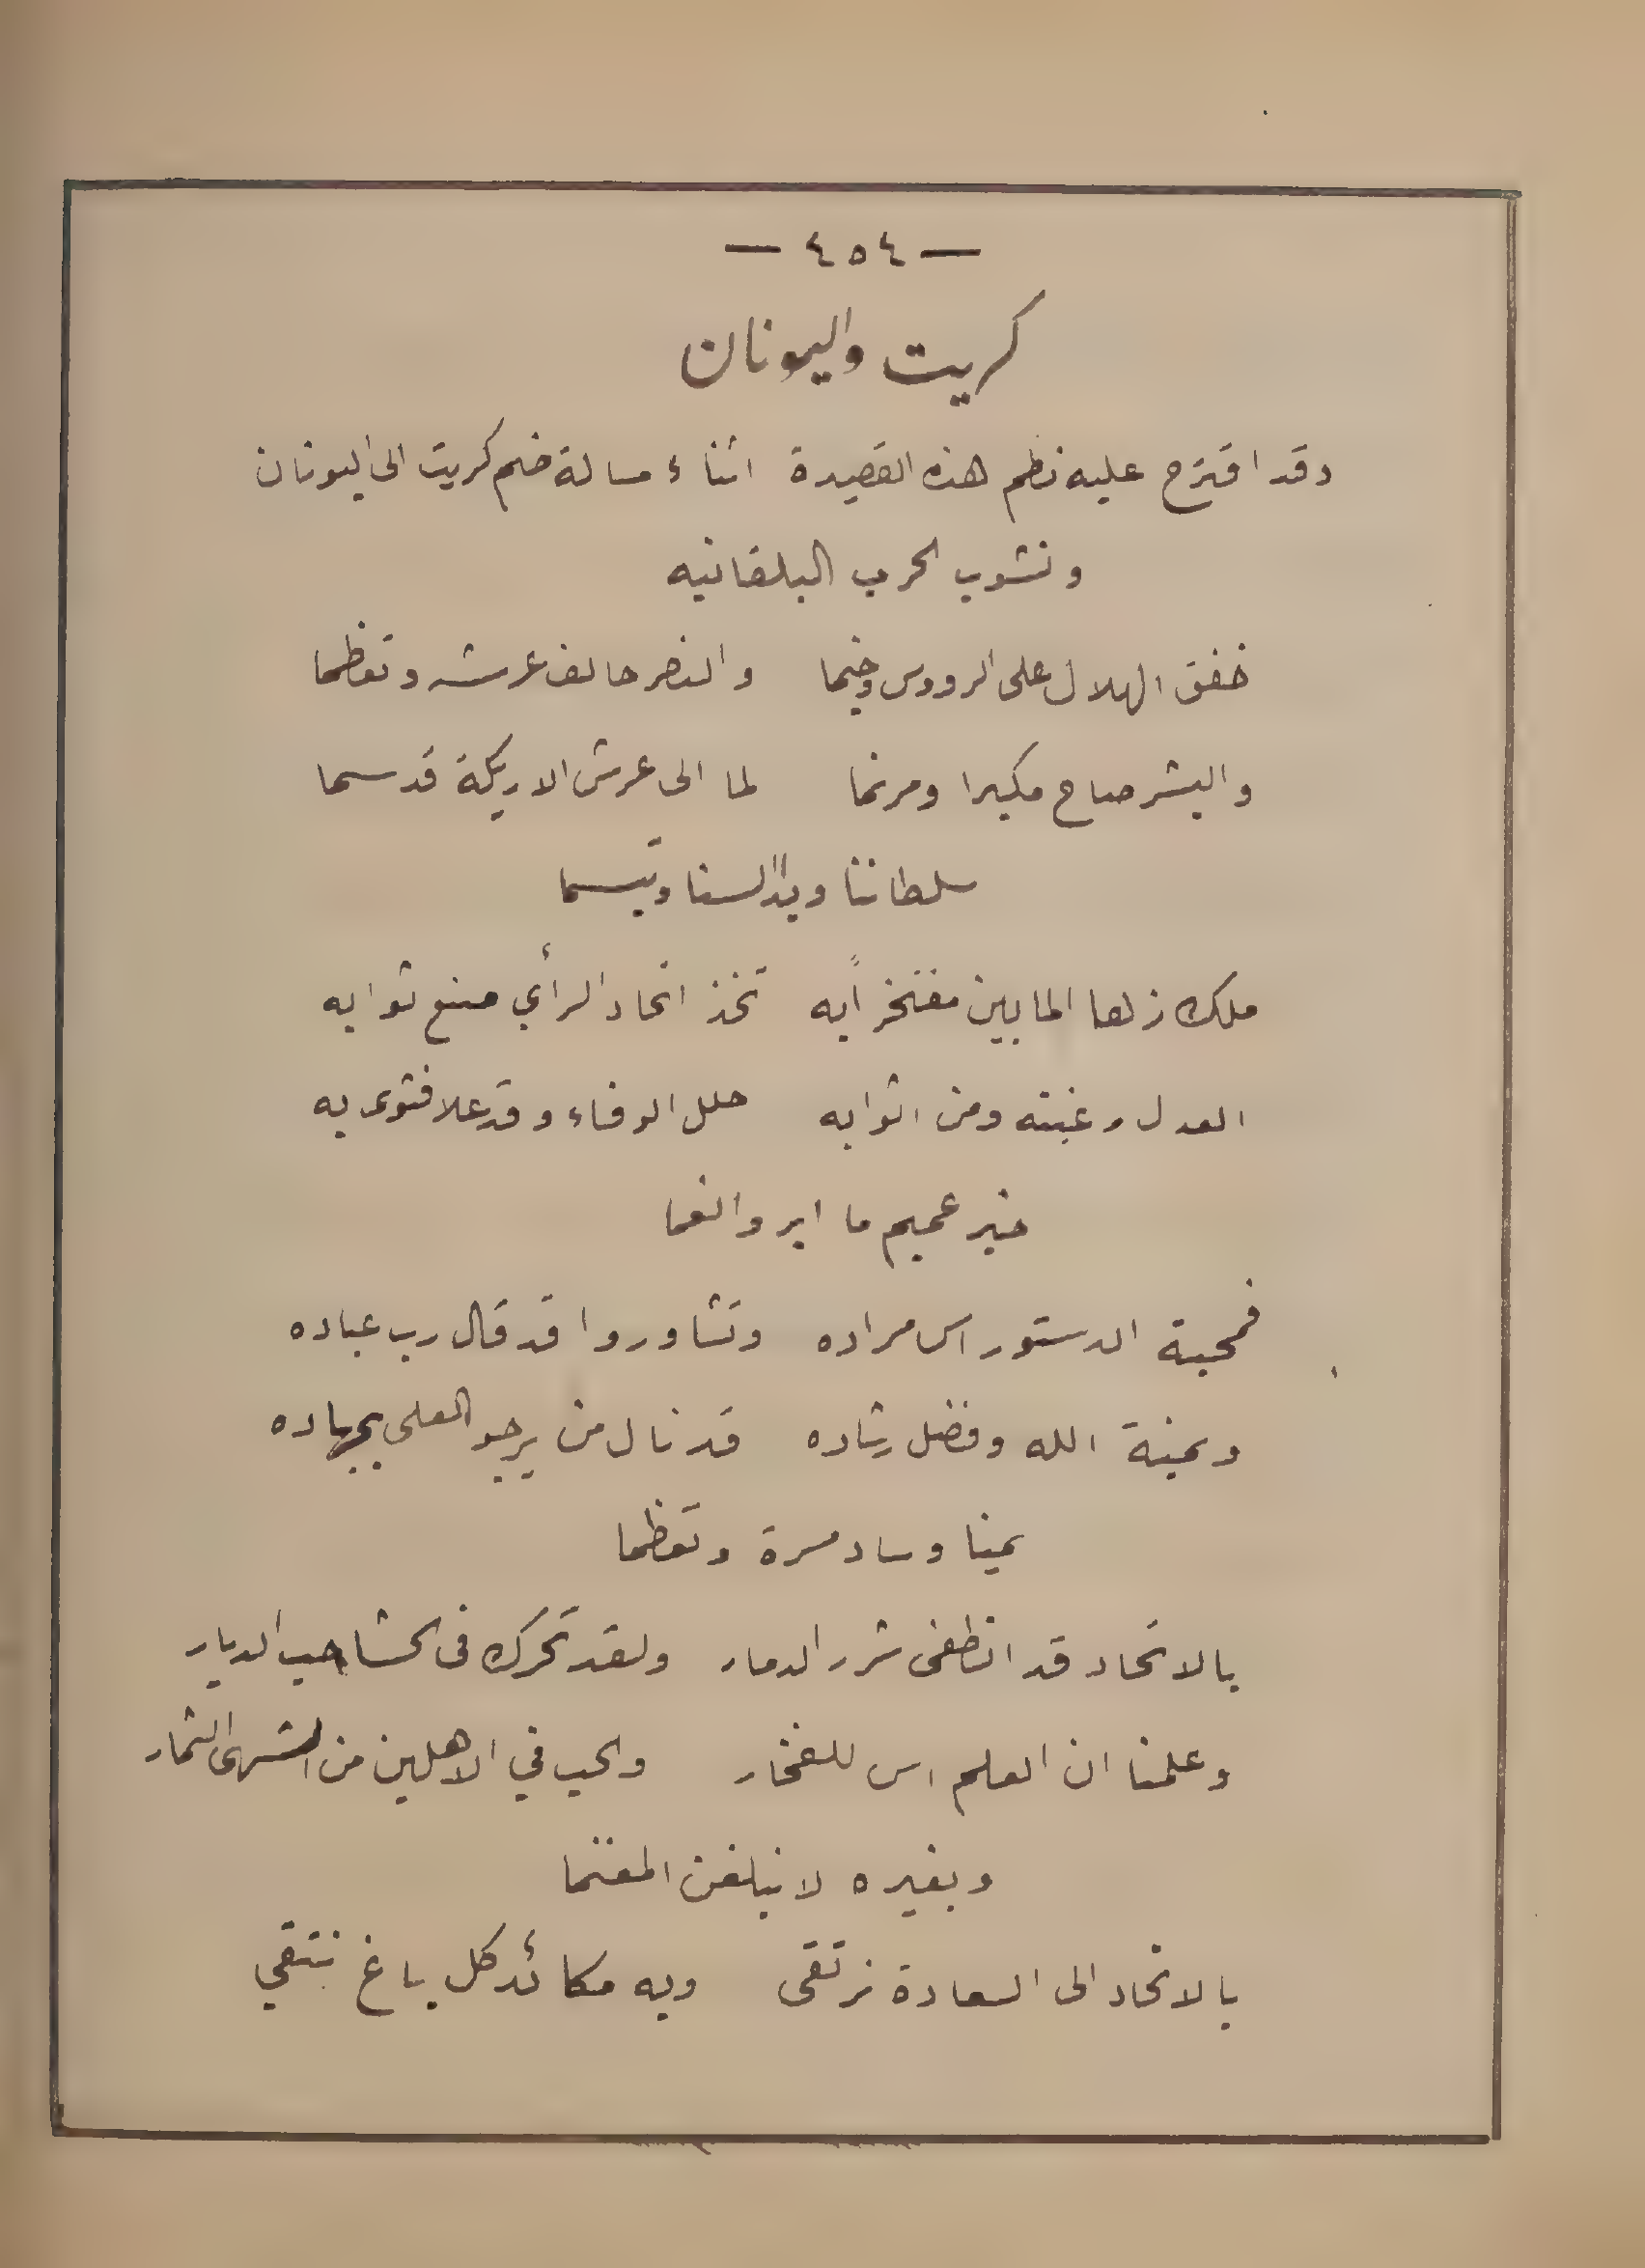 — ٤٥٤ —
كريت واليونان
وقد اقترح عليه نظم هذه القصيدة اثناء مسالة ضم كريت الى اليونان
ونشوب الحرب البلقانيه
خفق الهلال على الروؤس وخيما والنصر حالف عرشه وتعظما
والبشر صاح مكبرا ومرنما لما الى عرش الاريكة قد سما
سلطاننا وبدا السنا وتبسما
ملك زها المابين مفتخراً به تخذ اتحاد الرأي منع ثوابه
العدل رغبته ومن اثوابه حلل الوفاء وقد علا فتوى به
خير عميم ما ابر وانعما
فمحبة الدستور اس مراده وتشاوروا قد قال رب عباده
وبمنة الله وفضل رشاده قد نال من يرجو العلى بجهاده
يمنا وساد مسرة وتعظما
بالاتحاد قد انطفى شرر الدمار ولقد تحرك في الحشا حب الديار
وعلمنا ان العلم اس للفخار والحب في الاهلين من اشهى الثمار
وبغيره لا نبلغن المغنما
بالاتحاد الى السعادة نرتقى وبه مكائد كل باغ نتقي